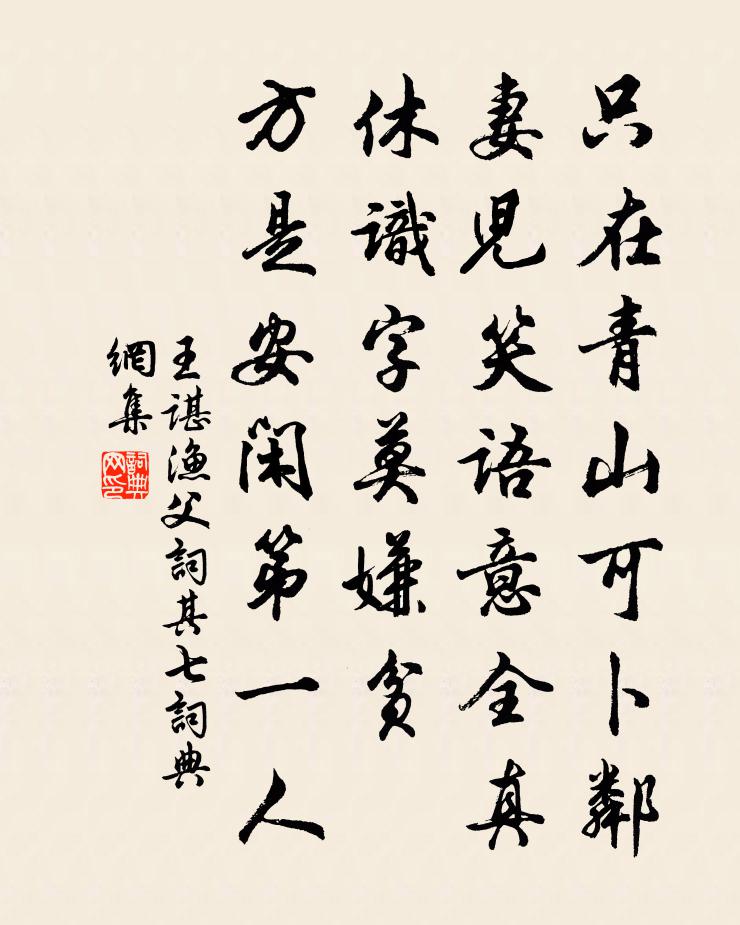 只在青山可卜鄰
妻兒笑語意全真
休識字莫嫌貧
方是安閑第一人
王諶漁父詞其七詞典
網集
詞典
网印